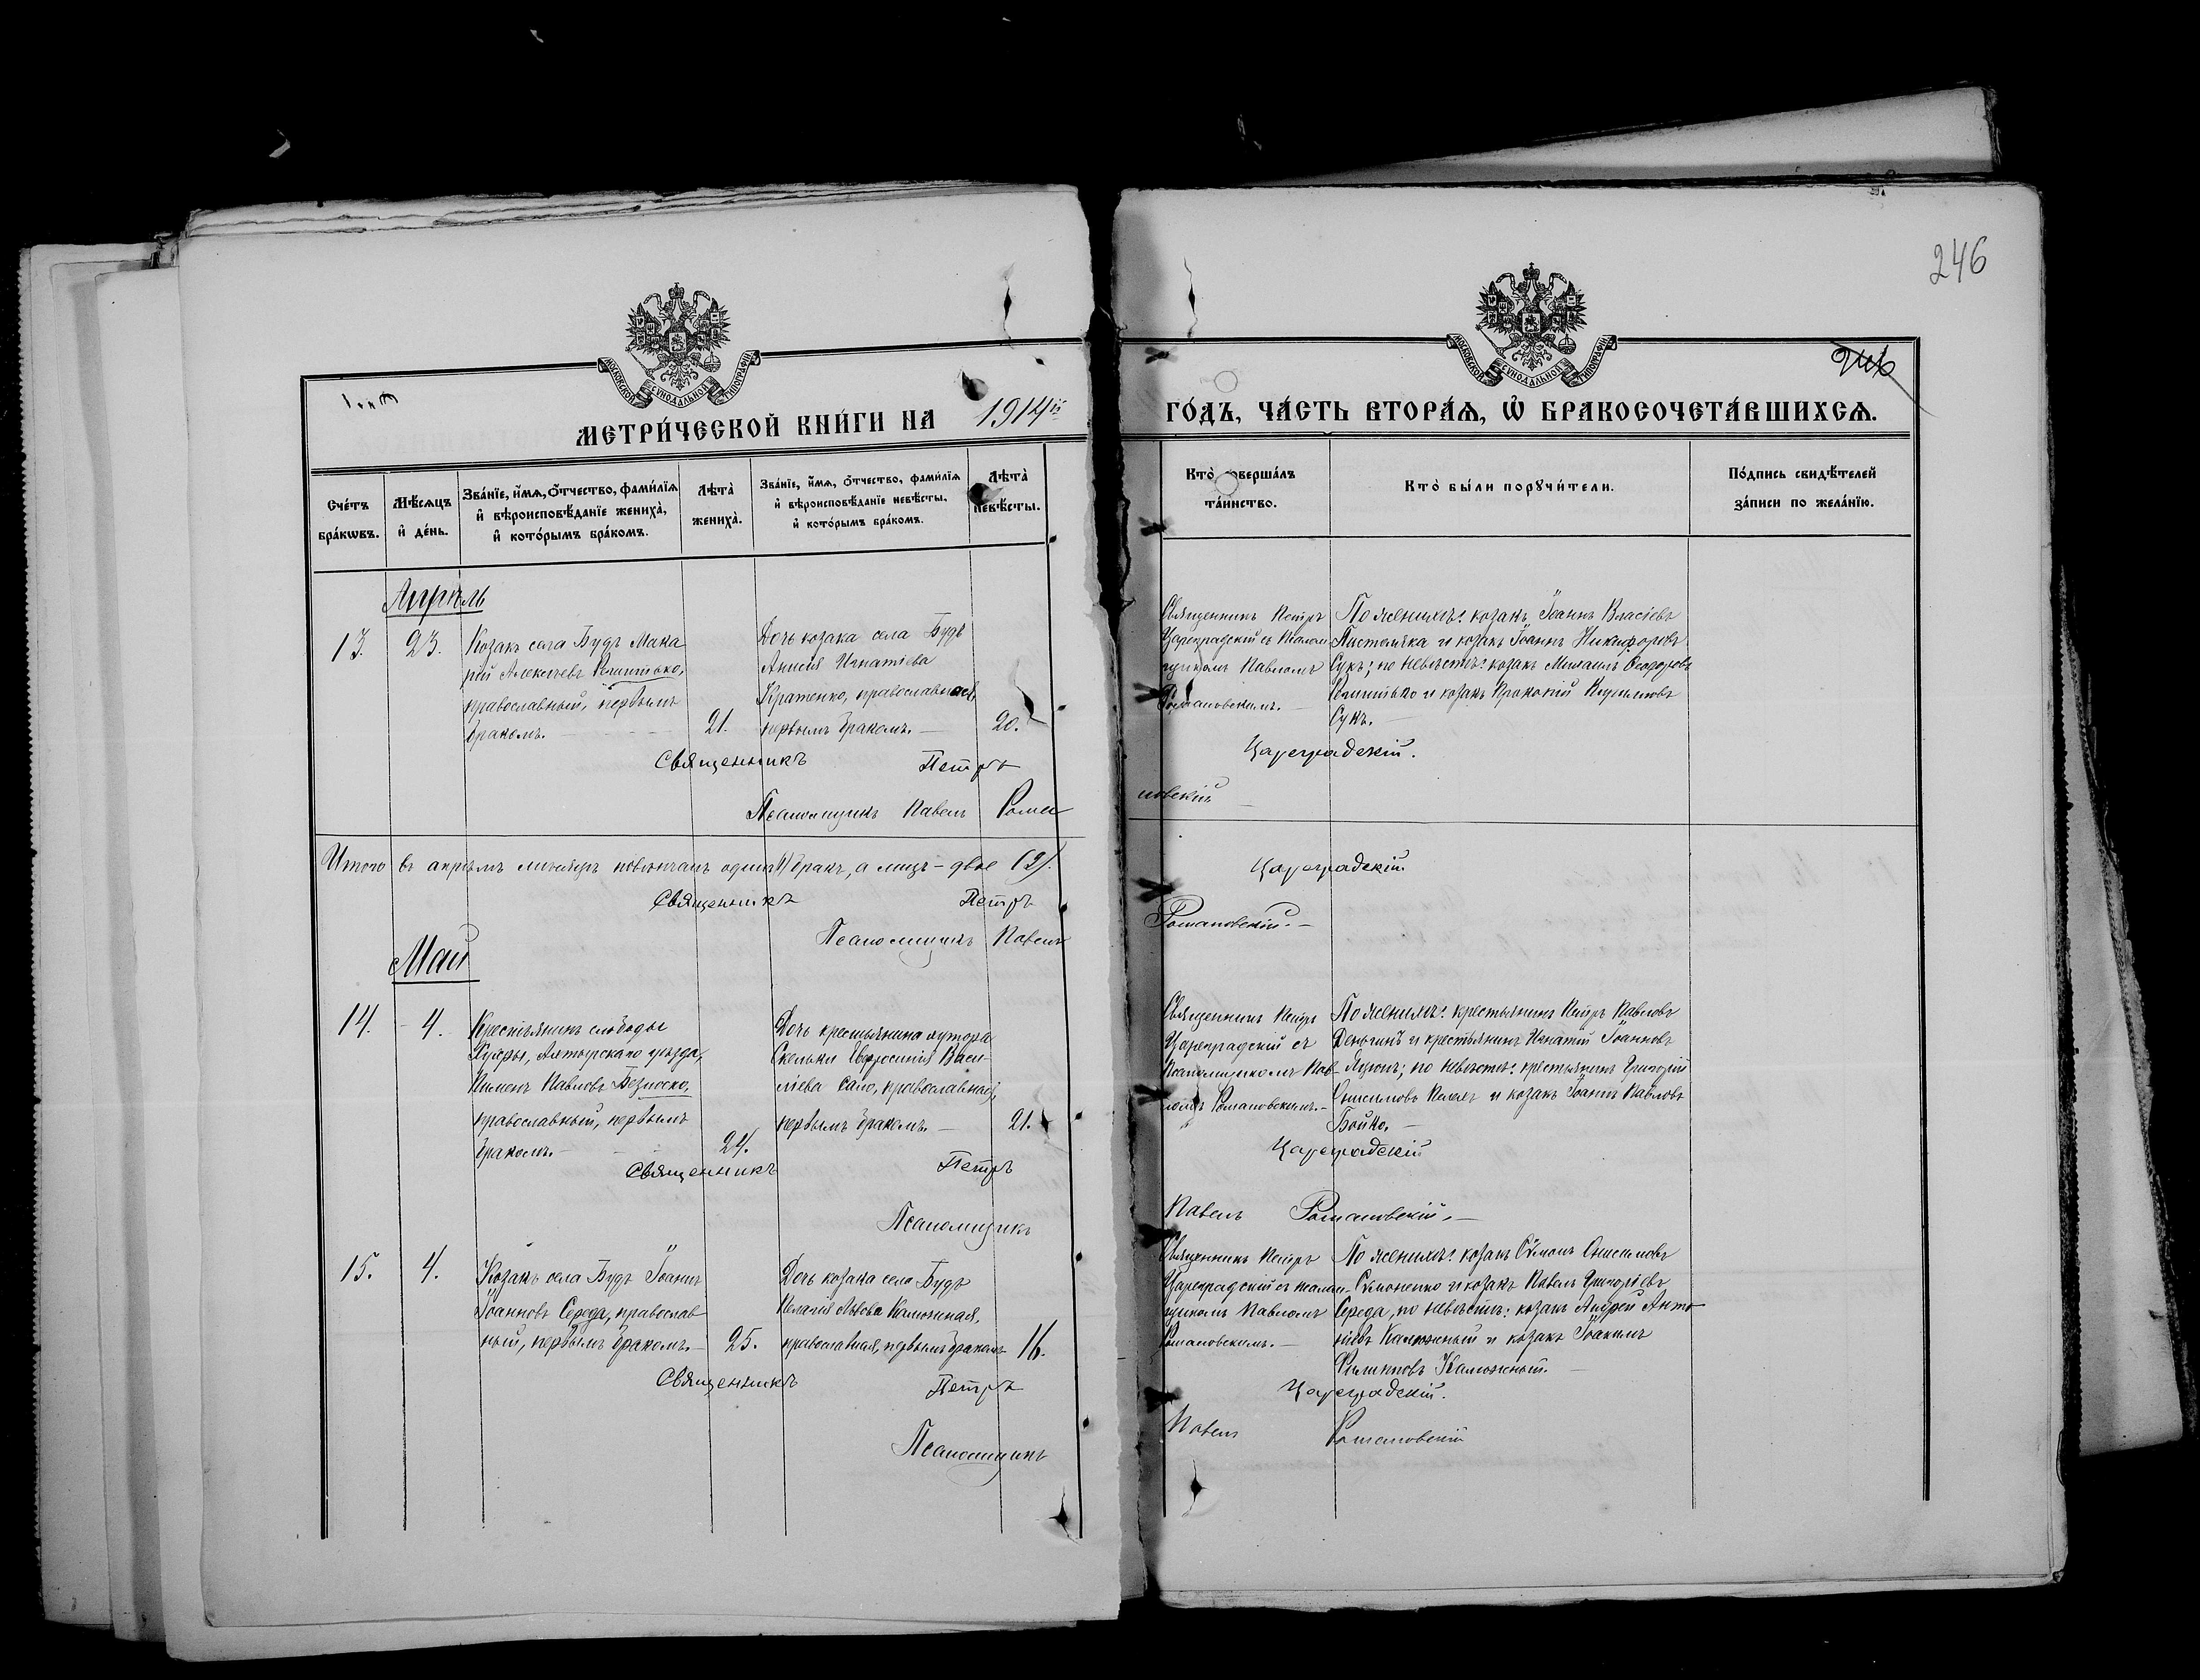 246
МОСКОВСКОЙ СѴНОДАЛЬНОЙ ТИПОГРАФІИ
МОСКОВСКОЙ СѴНОДАЛЬНОЙ ТИПОГРАФІИ
246
МЕТРИ́ЧЕСКОЙ КНИ́ГИ НА 1914й ГО́ДЪ, ЧА́СТЬ ВТОРА́Ѧ, Ѡ҆ БРАКОСОЧЕТА́ВШИХСѦ.
Сче́тъ бра́кѡвъ.
Мѣ́сѧцъ и҆ де́нь.
Зва́нїе, и҆́мѧ, ѻ҆́тчество, фами́лїѧ и҆ вѣроисповѣ́данїе жениха̀, и҆ кото́рымъ бра́комъ.
Лѣта̀ жениха̀.
Зва́нїе, и҆́мѧ, ѻ҆́тчество, фами́лїѧ и҆ вѣроисповѣ́данїе невѣ́сты, и҆ кото́рымъ бра́комъ.
Лѣта̀ невѣ́сты.
Кто̀ соверша́лъ та́инство.
Кто̀ бы́ли порꙋчи́тели.
По́дпись свидѣ́телей за́писи по жела́нїю.
Апрѣль
13.
23.
Козакъ села Будъ Мака
рій Алексѣевъ
православный, первымъ
бракомъ.
21.
Дочь козака села Будъ
Анисія Игнатіева
Кратенко, православная,
первымъ бракомъ.
20.
Священникъ Петръ
Цареградскій съ псалом
щикомъ Павломъ
Романовскимъ.
По женихѣ: козакъ Іоаннъ Власіевъ
и козакъ Іоаннъ Никифоровъ
Сукъ; по невѣстѣ: козакъ Михаилъ Ѳеодоровъ
и козакъ
Сукъ.
Священникъ Петръ Цареградскій.
Псаломщикъ Павелъ Романовскій
Итого въ апрѣлѣ мѣсяцѣ повѣнчанъ одинъ (1) бракъ, а лицъ – двое (2).
Священникъ Петръ Цареградскій.
Псаломщикъ Павелъ Романовскій.
Май
14.
4.
Крестьянинъ слободы
Ахтырскаго уѣзда,
Пименъ Павловъ Безноско,
православный, первымъ
бракомъ.
24.
Дочь крестьянина хутора
Скельки Евфросинія Васи-
ліева Сало, православная,
первымъ бракомъ.
21.
Священникъ Петръ
Цареградскій съ
псаломщикомъ Пав-
ломъ Романовскимъ.
По женихѣ: крестьянинъ Петръ Павловъ
и крестьянинъ Игнатій Іоанновъ
по невѣстѣ: крестьянинъ Григорій
Онисимовъ и козакъ Іоаннъ Павловъ
Бойко.
Священникъ Петръ Цареградскій
Псаломщикъ Павелъ Романовскій.
15.
4.
Козакъ села Будъ Іоаннъ
Іоанновъ Середа, православ
ный, первымъ бракомъ.
25.
Дочь козака села Будъ
Пелагія Львова Калюжная,
православная, первымъ бракомъ
16.
Священникъ Петръ
Цареградскій съ псалом-
щикомъ Павломъ
Романовскимъ.
По женихѣ: козакъ Сѵмонъ Онисимовъ
Сѵмоненко и козакъ Павелъ Григоріевъ
Середа, по невѣстѣ: козакъ Андрей Анто
ніевъ Калюжный и козакъ Іоакимъ
Филипповъ Калюжный.
Священникъ Петръ Цареградскій.
Псаломщикъ Павелъ Романовскій